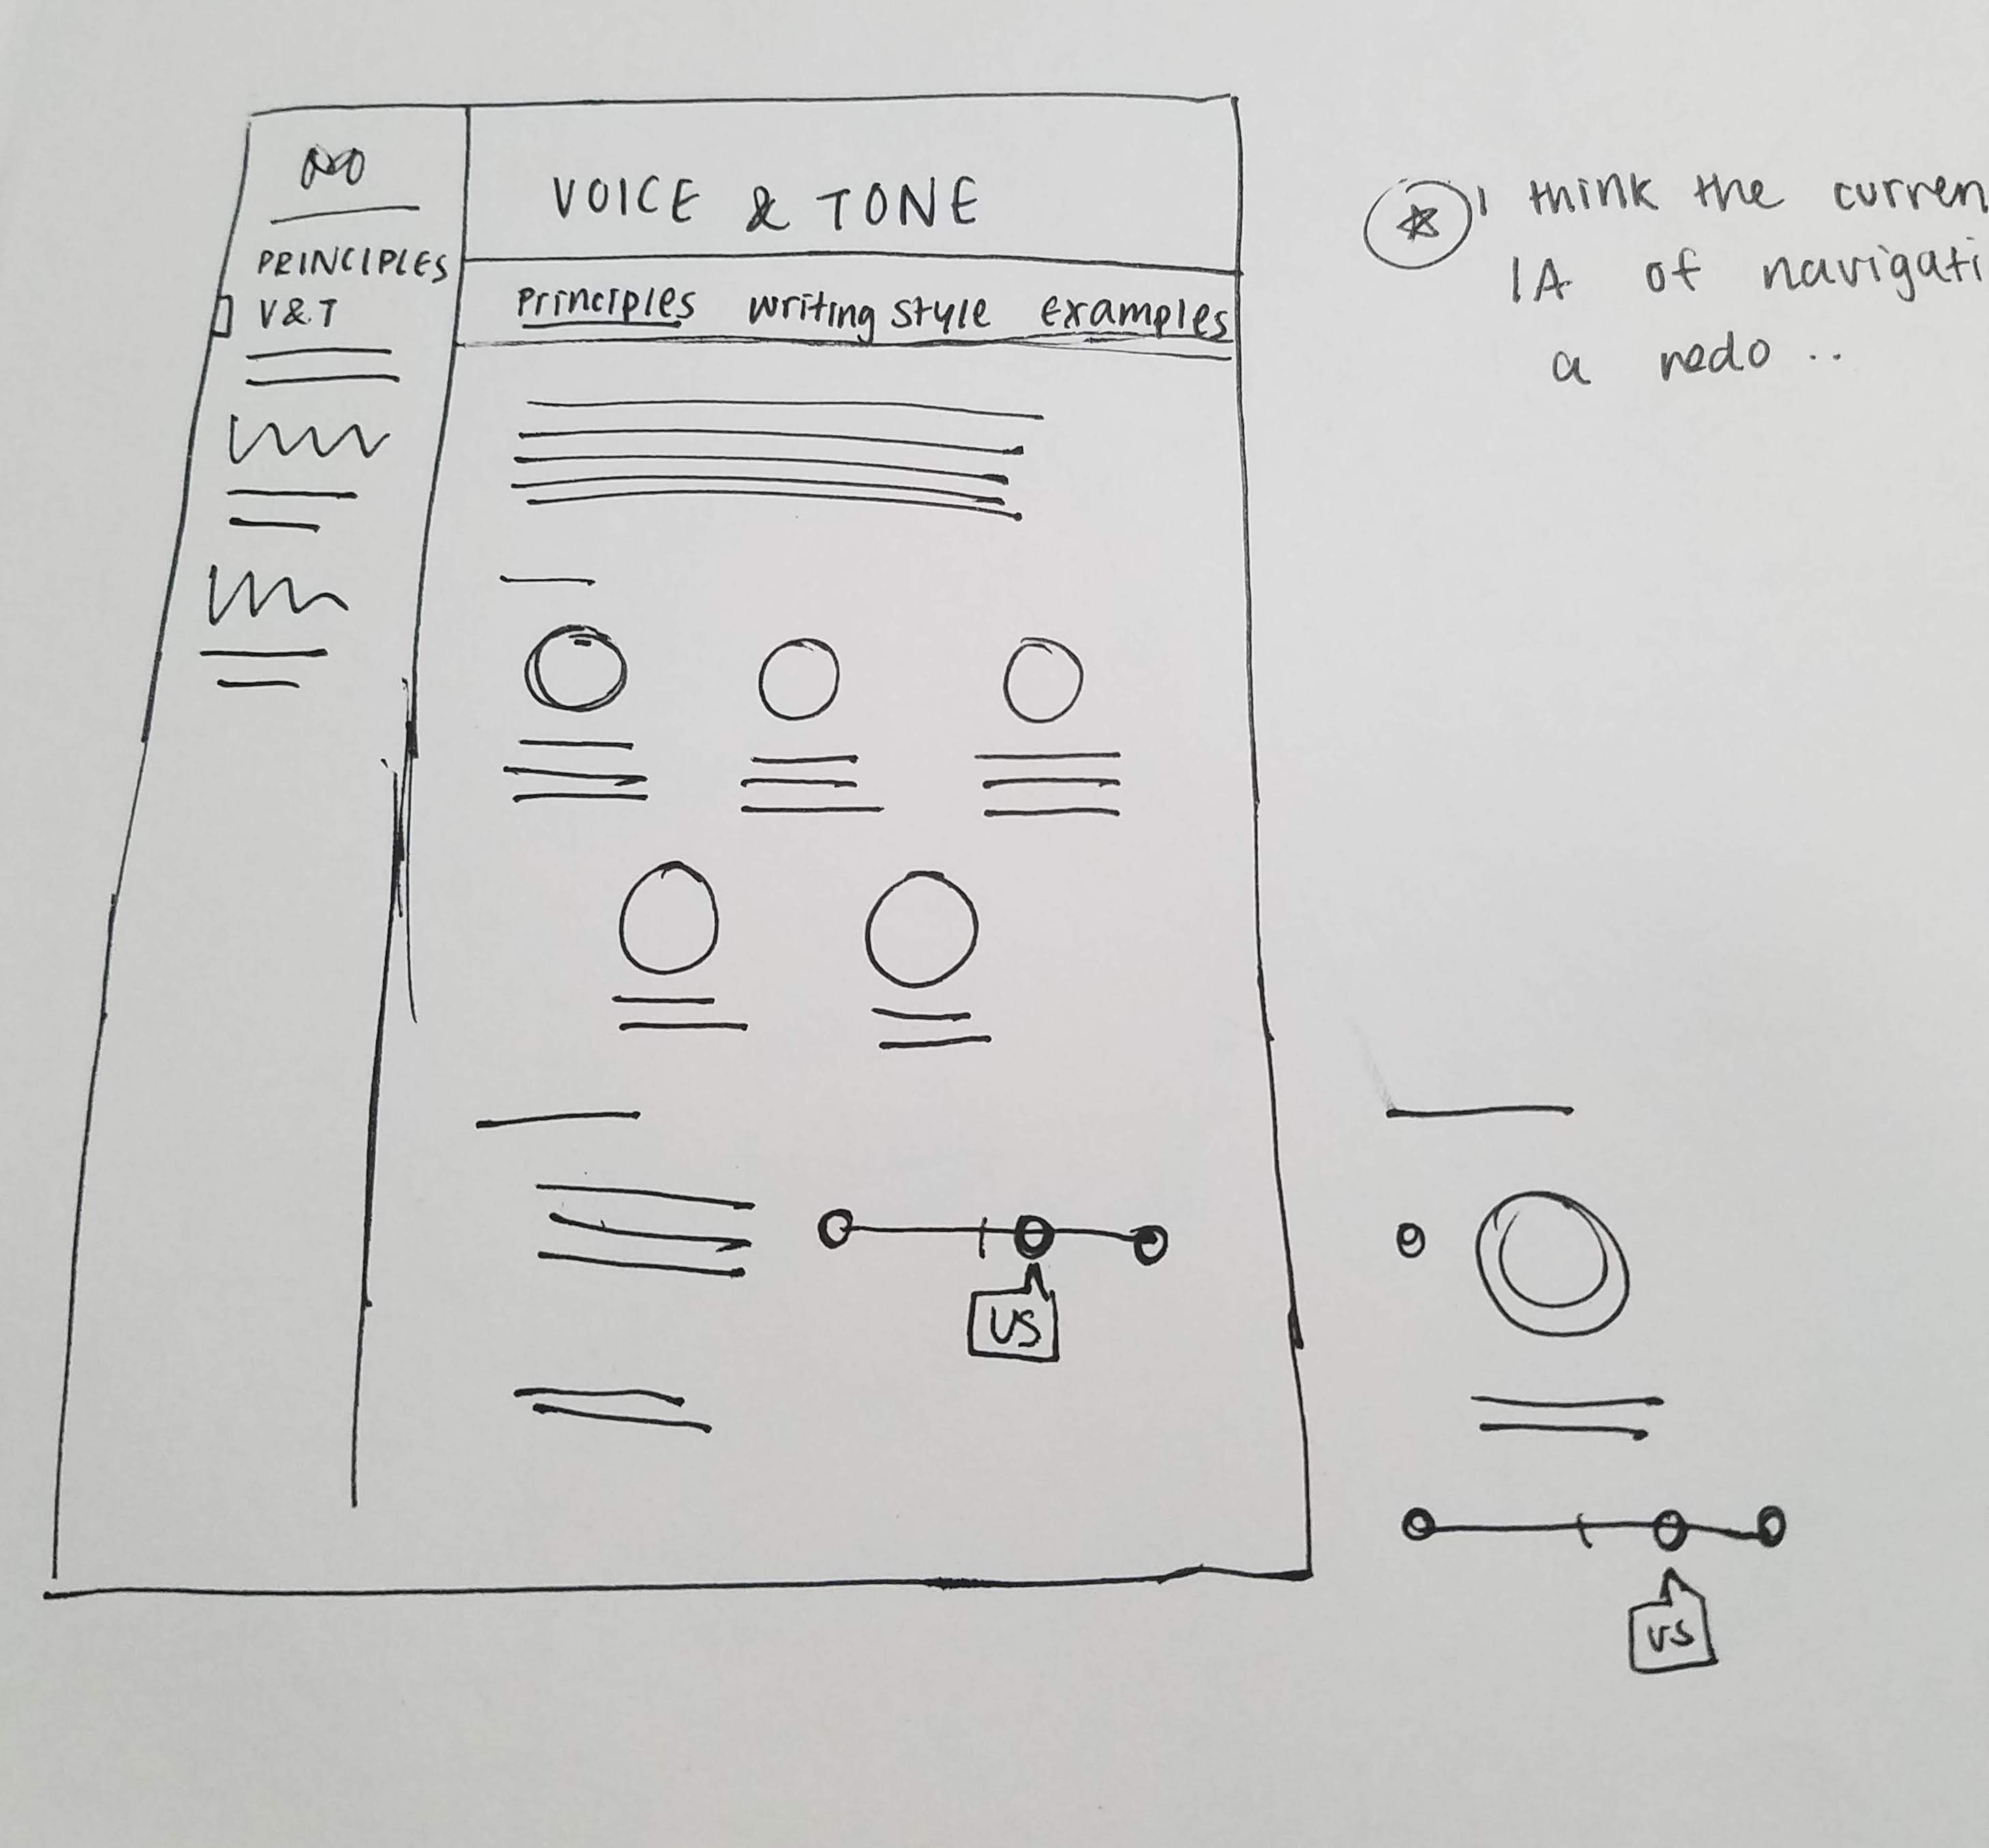 PRINCIPLES
V&T
VOICE & TONE
Principles writing style examples
US
I think the curren
IA of navigati
a redo ..
US